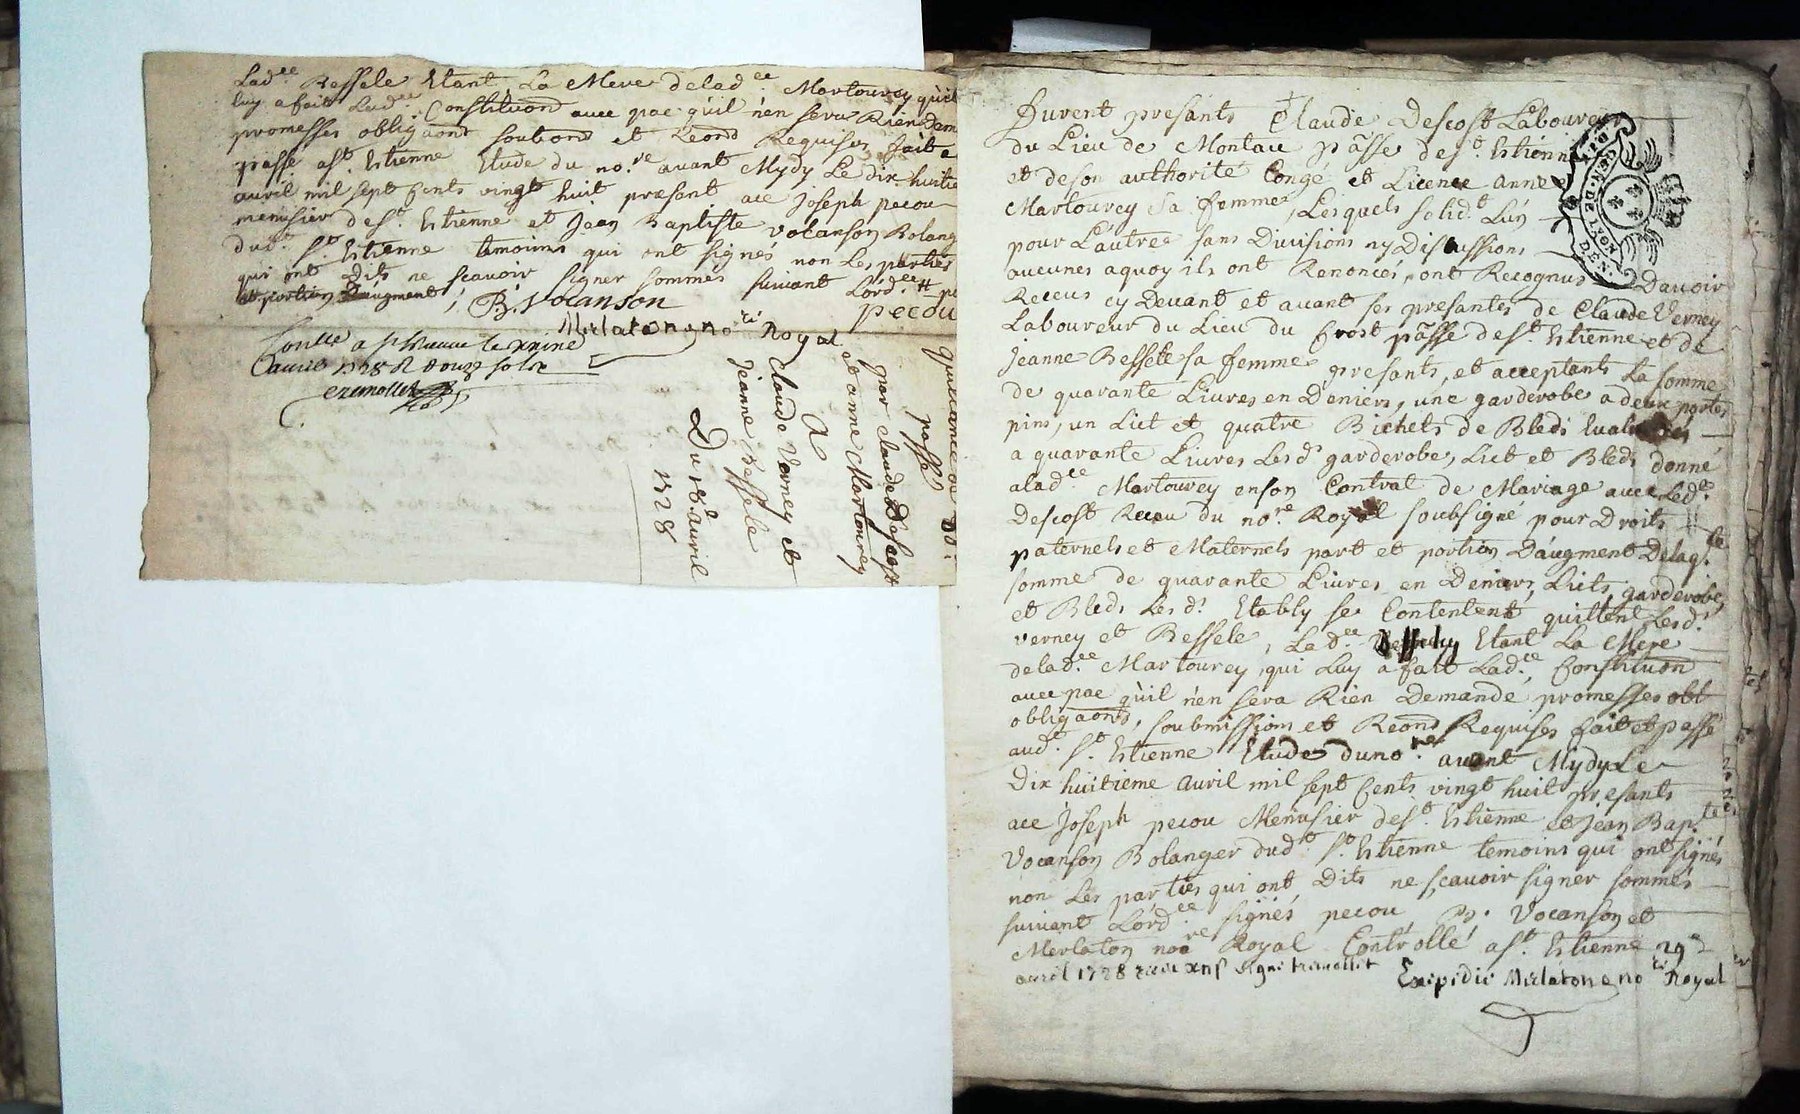 Lad.ee Bessele Etant La Mere delad.ee Martourey qu'il
luy a fait Lad.ee Constituon avec pac qu'il n'en sera Rien Dem
promesses obligaons soubons et Reons Requises fait e
passe a St. Estienne Etude du no.re avant Mydy Le dix huitie
avril mil sept Cents vingt huit presant ace Joseph pecou
menusier de St. Estienne et Jean Baptiste vocanson Bolang
dud.t St. Estienne temoins qui ont signés non Les parties
qui ont dits ne scavoir signer sommés suivant Lord.ce
et portion D'augment B. Vocanson pecou
Merlaton no.re Royal
avril 1728 R douze sols
Quittance de
passé
par claude Descost
et anne Martourey
A
Claude Verney et
Jeanne Bessele
Du 18.e avril
1728
DEN
GEN. DE LYON
Furent presants Claude Descost Laboureur
du Lieu de Montau pãsse de St. Estienne
et deson authorité Congé et Licence anne
Martourey Sa femme, Lesquels solid.t Lún
pour L'autre sans Divisions ny Discussions
aucunes aquoy ils ont Renoncés, ont Recognus Davoir
Receus cy Devant et avant ses presantes de Claude Verney
Laboureur du Lieu du Crost pãsse de St. Estienne et de
Jeanne Bessele sa femme presants, et acceptants La somme
de quarante Livres en Deniers, une garderobe a deux portes
pins, un Lict et quatre Bichets de Bleds
a quarante Livres Les d. garderobe, Lict et Bleds donné
alad.ee Martourey enson Contrat de Mariage avec Led.
Descost Receu du no.re Royal soubsigné pour Droits
paternels et Maternels part et portion D'augment Delaq.le
somme de quarante Livres en Deniers, Licts, garderobe,
et Bleds Les d.s Etably se Contentent quittent Les d.s
verney et Bessele, Lad.ee Etant La Mere
delad.ee Martourey, qui Luy a fait Lad.ee Constituon
avec pac qu'il n'en sera Rien Demandé promesses obl
obligaons, soubmissions et Reons Requises fait et passé
aud.t St. Estienne Etude duno.re avant Mydy Le
Dix huitieme avril mil sept Cents vingt huit presants
ace Joseph pecou Menusier de St. Estienne et Jean Bap.te
Vocanson Bolanger dud.t St. Estienne temoins qui ont signés
non Les parties qui ont Dits ne scavoir signer sommés
suivant Lord.ce signés pecou, B. Vocanson et
Merlaton no.re Royal Contrôllé a St. Estienne 29
avril 1728
Expedié Merlaton no.re Royal